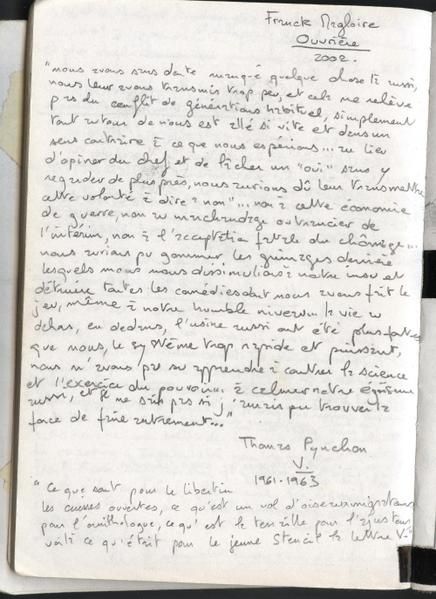 Franck Magloire
Ouvrière
2002.
"nous avons sans doute manqué quelque chose là aussi,
nous leur avons transmis trop peu, et cela ne relève
pas du conflit de générations habituel, simplement
tout autour de nous est allé si vite et dans un
sens contraire à ce que nous espérions... au lieu
d'opiner du chef et de lâcher un "oui" sans y
regarder de plus près, nous aurions dû leur transmettre
cette volonté à dire "non"... non à cette économie
de guerre, non au marchandage outrancier de
l'intérim, non à l'acceptation fatale du chômage...
nous aurions pu gommer les grimaces derrière
lesquels nous nous dissimulions à notre insu et
détruire toutes les comédies dont nous avons fait le
jeu, même à notre humble niveau... la vie au
dehors, en dedans, l'usine aussi ont été plus fortes
que nous, le système trop rapide et puissant,
nous n'avons pas su apprendre à contrer la science
et l'exercice du pouvoir... à calmer notre égoïsme
aussi, et je ne sais pas si j'aurais pu trouver la
force de faire autrement..."
Thomas Pynchon
V.
1961-1963
"Ce que sont pour le libertin
les cuisses ouvertes, ce qu'est un vol d'oiseaux migrateurs
pour l'ornithologue, ce qu'est la tenaille pour l'ajusteur
voilà ce qu'était pour le jeune Stencil la lettre V."